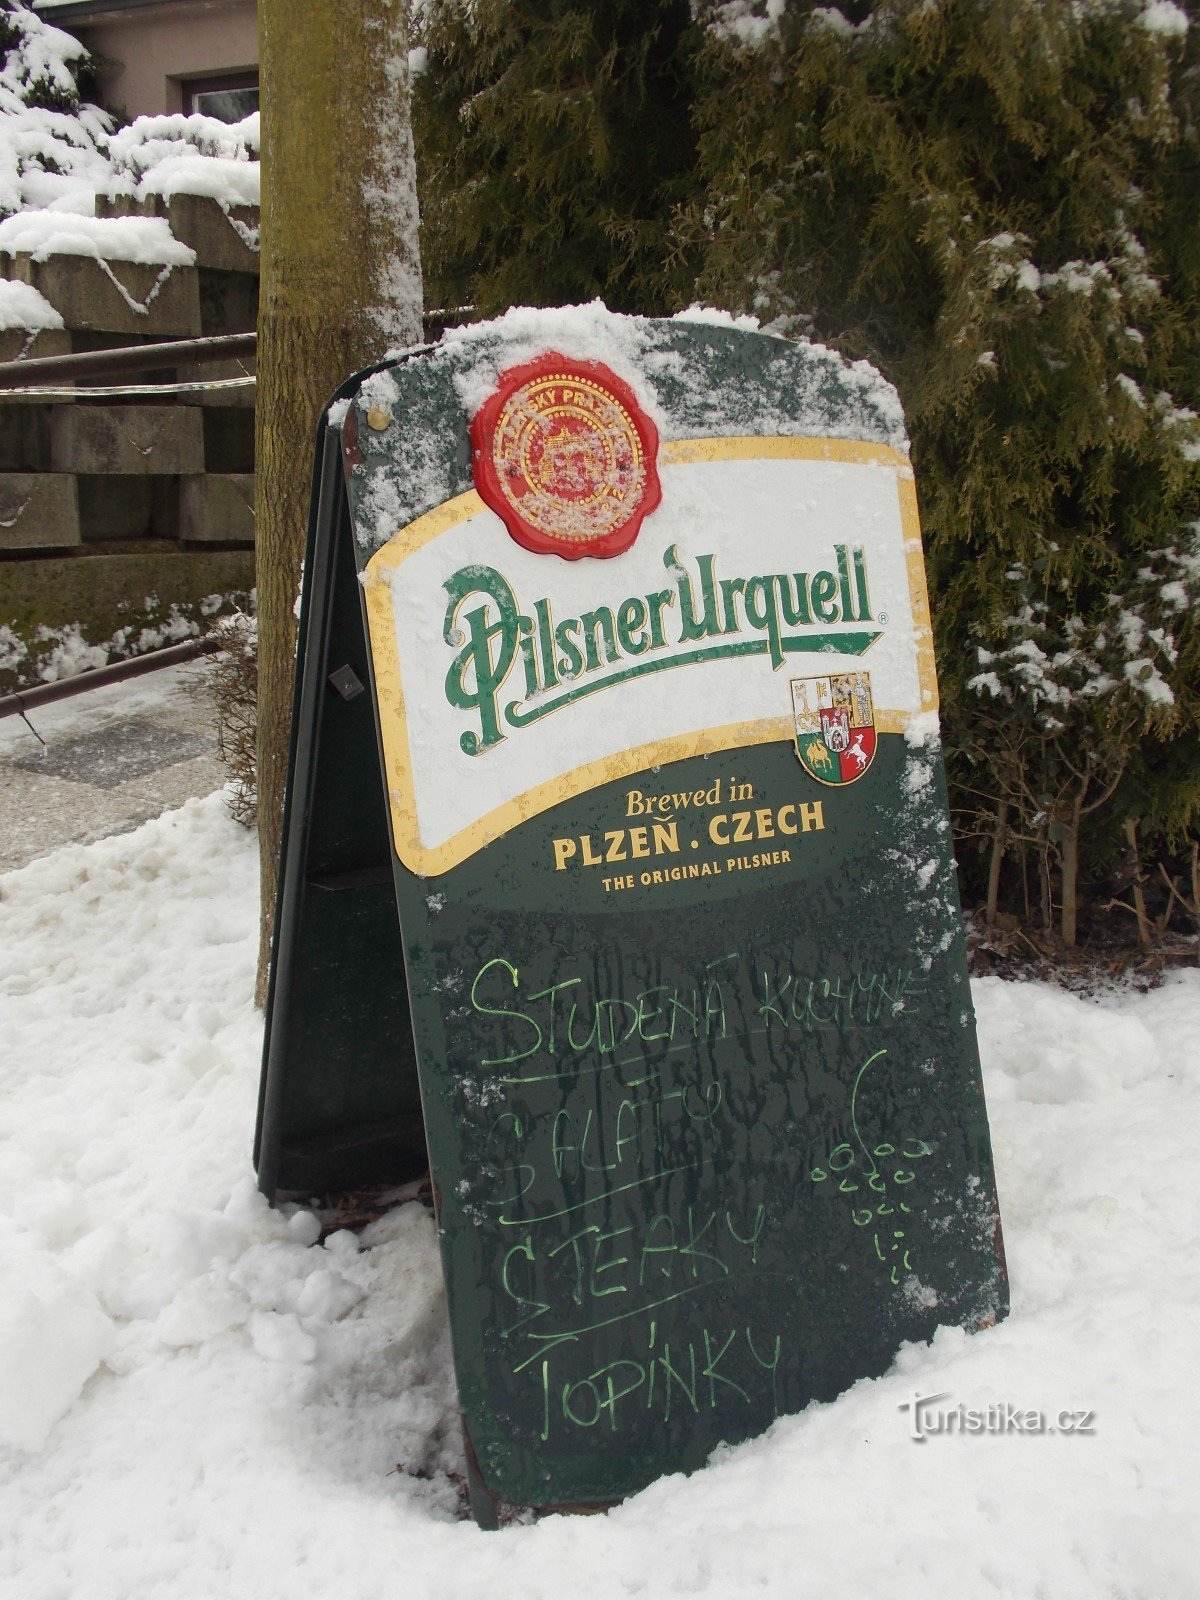 Pilsner Urquell ®
Brewed in
PLZEŇ . CZECH
THE ORIGINAL PILSNER
STUDENÁ KUCHYNĚ
SALÁTY
STEAKY
TOPINKY
Turistika.cz